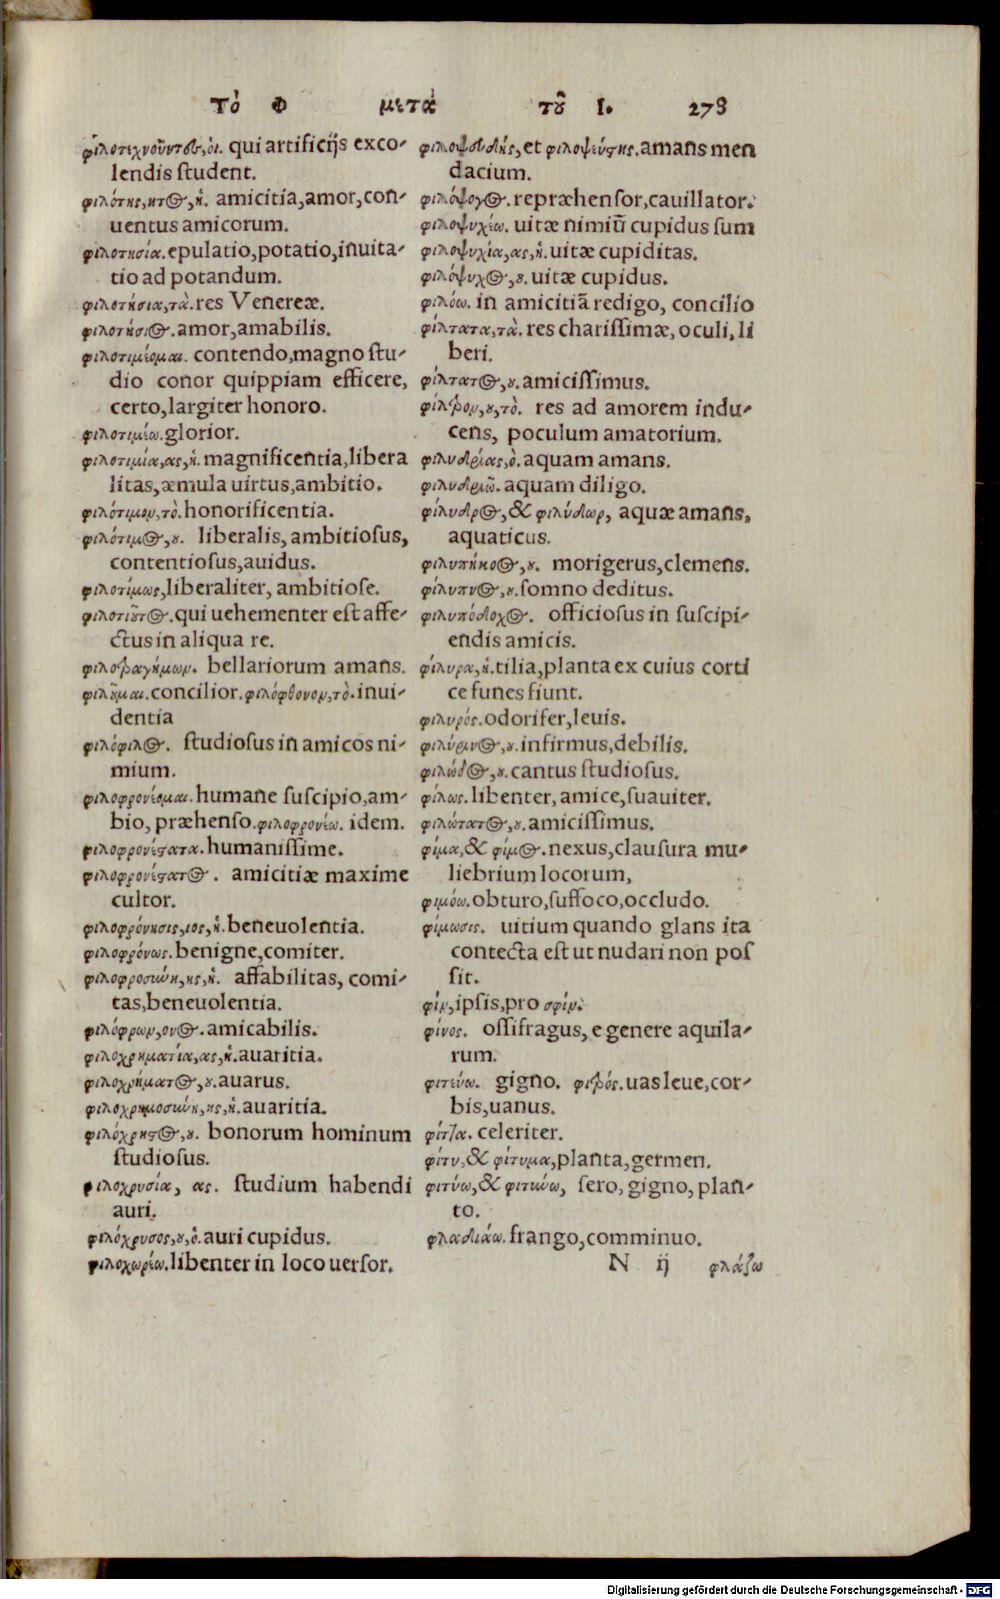 Τὸ Φ μετὰ τοῦ Ι. 278
φιλοτεχνοῦντες,οἱ. qui artificijs exco-
lendis student.
φιλότης,ητος,ἡ. amicitia,amor,con-
uentus amicorum.
φιλοτησία.epulatio,potatio,inuita-
tio ad potandum.
φιλοτήσια,τὰ.res Venereæ.
φιλοτήσιος.amor,amabilis.
φιλοτιμέομαι. contendo,magno stu-
dio conor quippiam efficere,
certo,largiter honoro.
φιλοτιμέω.glorior.
φιλοτιμία,ας,ἡ.magnificentia,libera
litas,æmula uirtus,ambitio.
φιλότιμον,τὸ.honorificentia.
φιλότιμος,ου. liberalis,ambitiosus,
contentiosus,auidus.
φιλοτίμως,liberaliter, ambitiose.
φιλοτιοῦτος.qui uehementer est affe-
ctus in aliqua re.
φιλοτραγήμων. bellariorum amans.
φιλοῦμαι.concilior.φιλόφθονον,τὸ.inui-
dentia
φιλόφιλος. studiosus in amicos ni-
mium.
φιλοφρονέομαι.humane suscipio,am-
bio, præhenso.φιλοφρονέω. idem.
φιλοφρονέστατα.humanissime.
φιλοφρονέστατος. amicitiæ maxime
cultor.
φιλοφρόνησις,ιος,ἡ.beneuolentia.
φιλοφρόνως.benigne,comiter.
φιλοφροσύνη,ης,ἡ. affabilitas, comi-
tas,beneuolentia.
φιλόφρων,ονος.amicabilis.
φιλοχρηματία,ας,ἡ.auaritia.
φιλοχρήματος,ου.auarus.
φιλοχρημοσύνη,ης,ἡ.auaritia.
φιλόχρηστος,ου. bonorum hominum
studiosus.
φιλοχρυσία, ας. studium habendi
auri.
φιλόχρυσος,ου,ὁ.auri cupidus.
φιλοχωρέω.libenter in loco uersor.
φιλοψευδής,et φιλοψεύστης.amans men
dacium.
φιλόψογος.repræhensor,cauillator.
φιλοψυχέω. uitæ nimiū cupidus sum
φιλοψυχία,ας,ἡ.uitæ cupiditas.
φιλόψυχος,ου.uitæ cupidus.
φιλόω. in amicitiā redigo, concilio
φίλτατα,τὰ. res charissimæ,oculi,li
beri.
φίλτατος,ου.amicissimus.
φίλτρον,ου,τὸ. res ad amorem indu-
cens, poculum amatorium.
φιλυδρίας,ὁ.aquam amans.
φιλυδριῶ.aquam diligo.
φίλυδρος,& φιλύδωρ, aquæ amans,
aquaticus.
φιλυπήκοος,ου. morigerus,clemens.
φίλυπνος,ου.somno deditus.
φιλυπόδοχος. officiosus in suscipi-
endis amicis.
φίλυρα,ἡ.tilia,planta ex cuius corti
ce funes fiunt.
φιλυρός.odorifer,leuis.
φιλύρινος,ου.infirmus,debilis.
φιλωδὸς,ου.cantus studiosus.
φίλως.libenter, amice,suauiter.
φιλώτατος,ου.amicissimus.
φίμα,& φίμος.nexus,clausura mu-
liebrium locorum,
φιμόω.obturo,suffoco,occludo.
φίμωσις. uitium quando glans ita
contecta est ut nudari non pos
sit.
φίν,ipsis,pro σφίν.
φίνος. ossifragus, e genere aquila-
rum.
φιτεύω. gigno. φιτρός.uas leue,cor-
bis,uanus.
φίττα. celeriter.
φίτυ,& φίτυμα,planta,germen.
φιτύω,& φιτύνω, sero,gigno,plan-
to.
φλαδιάω.frango,comminuo.
N ij φλάζω
Digitalisierung gefördert durch die Deutsche Forschungsgemeinschaft - DFG